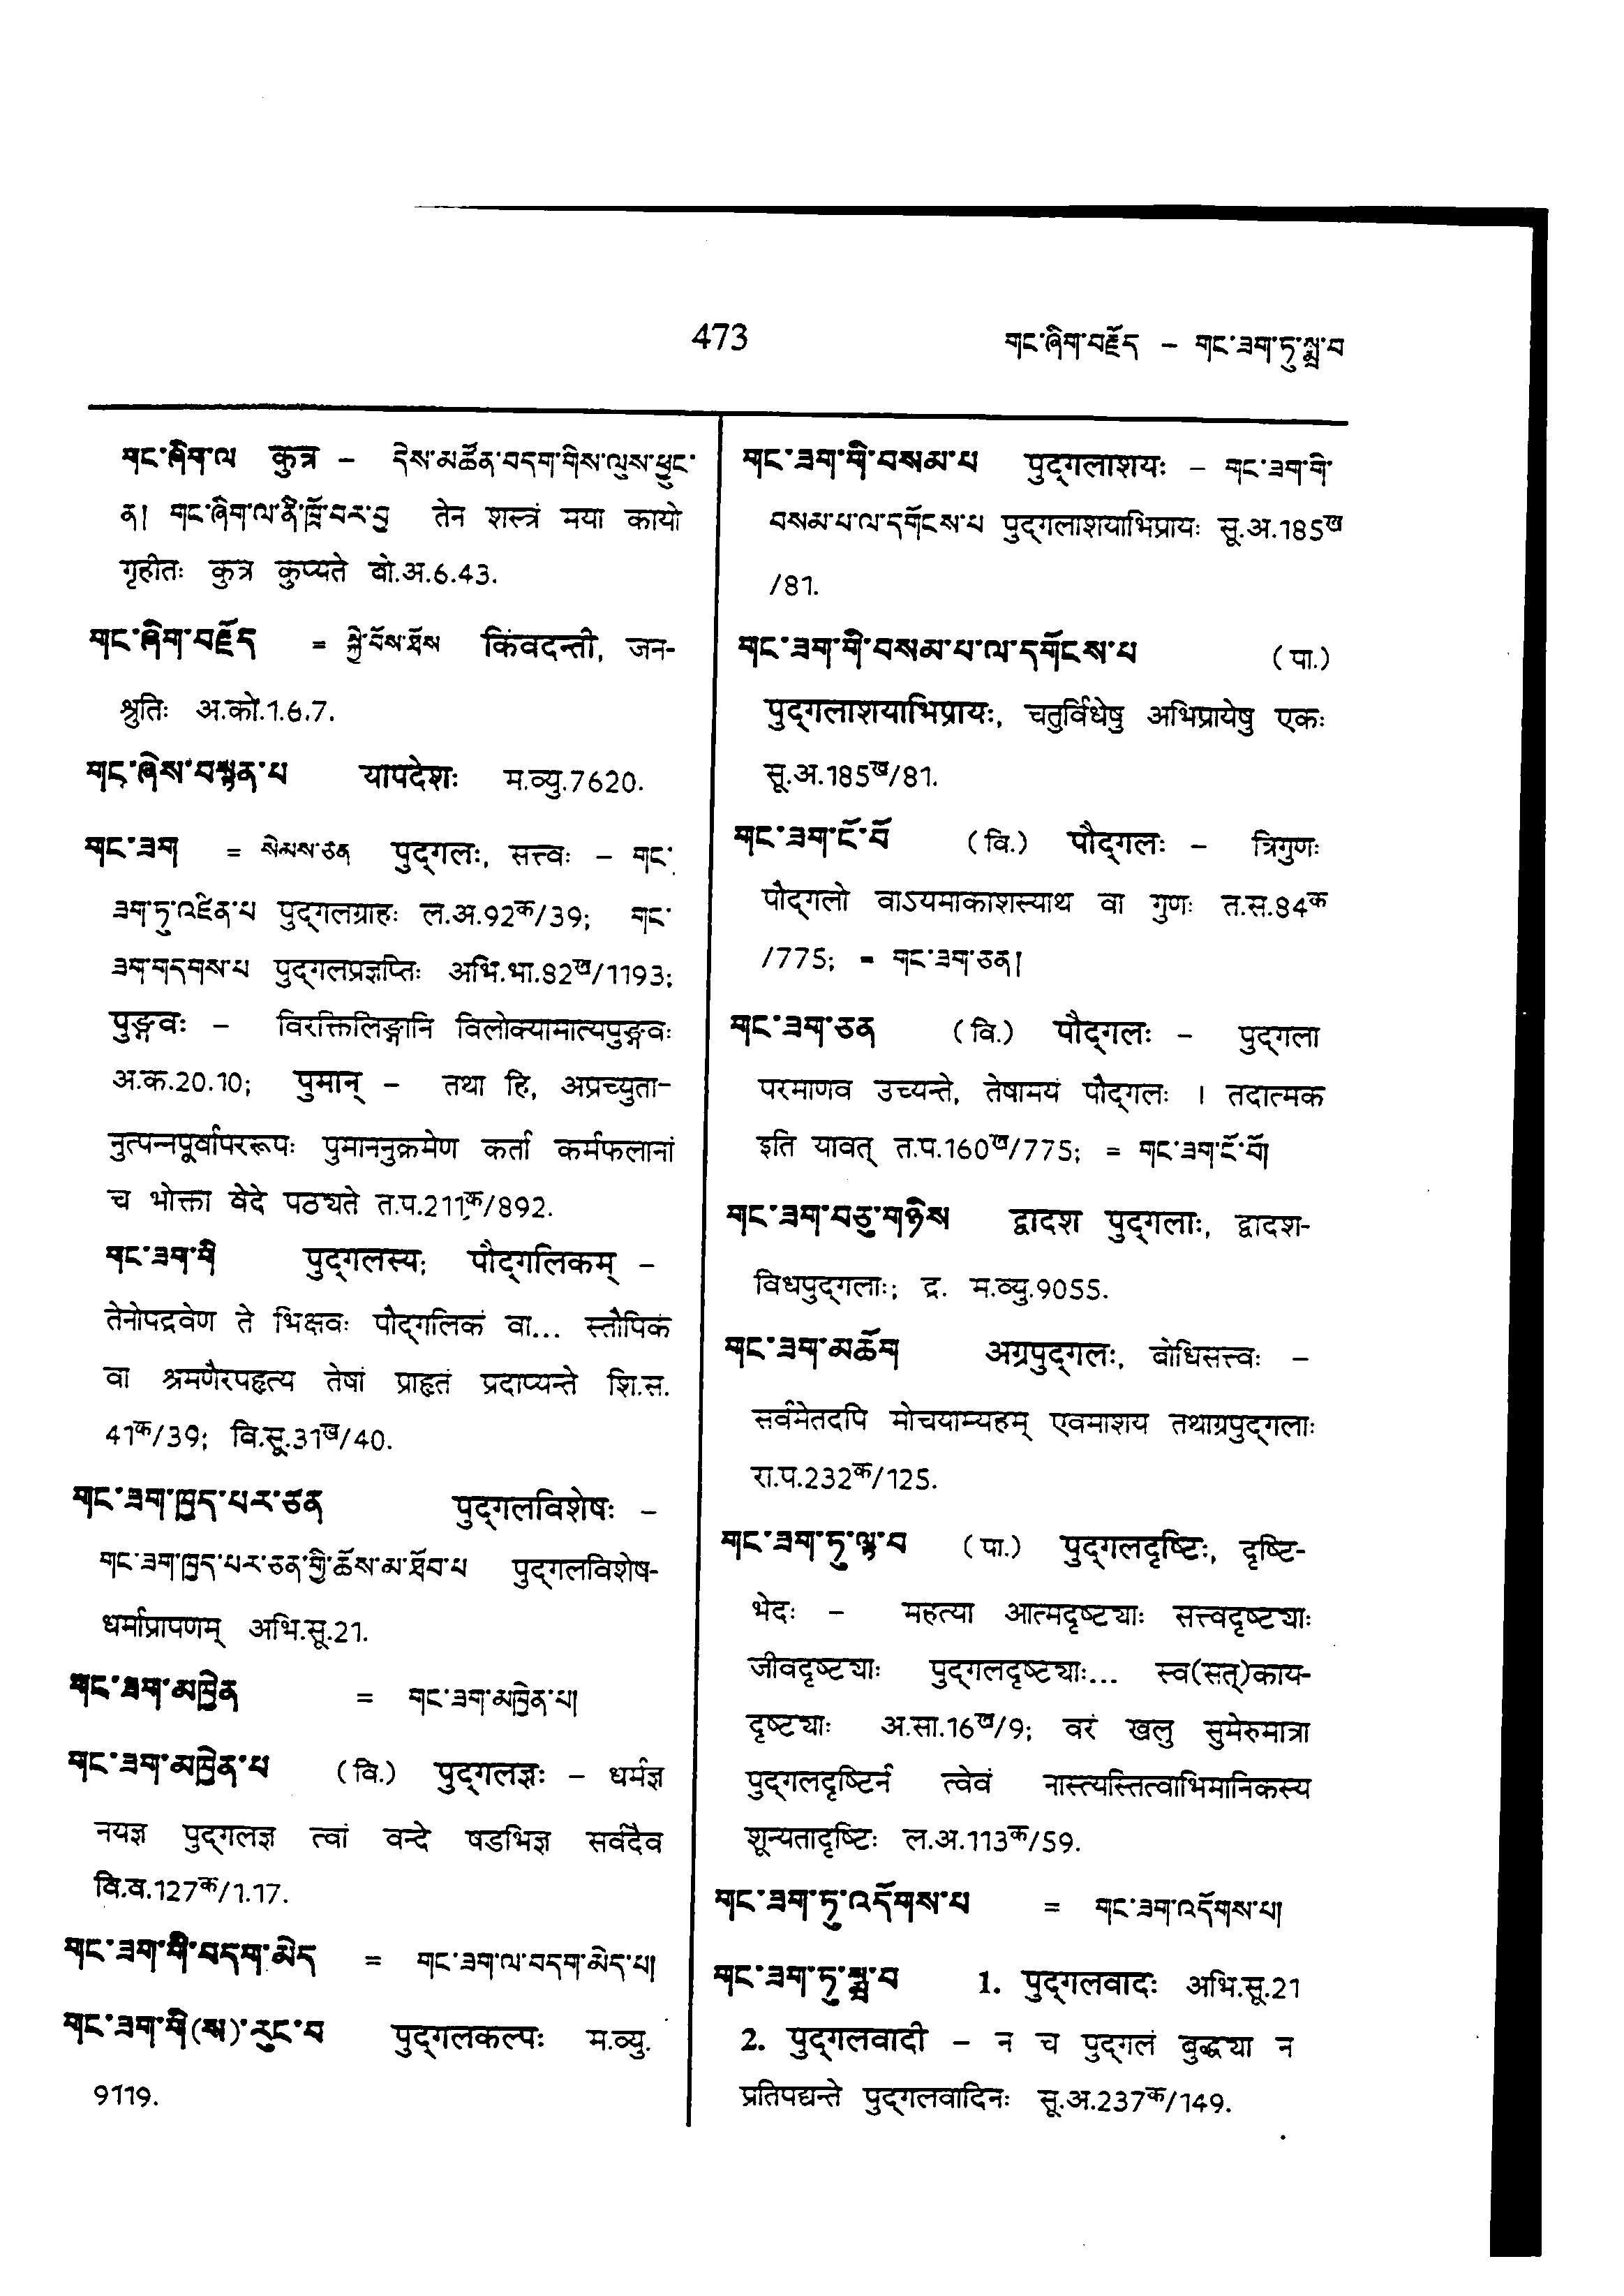 473
གང་ཞིག་བརྗོད – གང་ཟག་ཏུ་སྨྲ་བ
གང་ཞིག་ལ कुत्र – དེས་མཚོན་བདག་གིས་ལུས་ཕྱུང་
ན། གང་ཞིག་ལ་ནི་ཁྲོ་བར་བྱ तेन शस्त्रं मया कायो
गृहीतः कुत्र कुप्यते बो.अ.6.43.
གང་ཞིག་བརྗོད = སྐྱེ་བོས་ཐོས किंवदन्ती, जन-
श्रुतिः अ.को.1.6.7.
གང་ཞེས་བསྟན་པ यापदेशः म.व्यु.7620.
གང་ཟག = སེམས་ཅན पुद्गलः, सत्त्वः – གང་
ཟག་ཏུ་འཛིན་པ पुद्गलग्राहः ल.अ.92क/39; གང་
ཟག་གདགས་པ पुद्गलप्रज्ञप्तिः अभि.भा.82ख/1193;
पुङ्गवः – विरक्तिलिङ्गानि विलोक्यामात्यपुङ्गवः
अ.क.20.10; पुमान् – तथा हि, अप्रच्युता-
नुत्पन्नपूर्वापररूपः पुमाननुक्रमेण कर्ता कर्मफलानां
च भोक्ता वेदे पठ्यते त.प.211क/892.
གང་ཟག་གི पुद्गलस्य; पौद्गलिकम् –
तेनोपद्रवेण ते भिक्षवः पौद्गलिकं वा... स्तौपिकं
वा श्रमणैरपहृत्य तेषां प्राहृतं प्रदाप्यन्ते शि.स.
41क/39; वि.सू.31ख/40.
གང་ཟག་ཁྱད་པར་ཅན पुद्गलविशेषः –
གང་ཟག་ཁྱད་པར་ཅན་གྱི་ཆོས་མ་ཐོབ་པ पुद्गलविशेष-
धर्माप्रापणम् अभि.सू.21.
གང་ཟག་མཁྱེན = གང་ཟག་མཁྱེན་པ།
གང་ཟག་མཁྱེན་པ (वि.) पुद्गलज्ञः – धर्मज्ञ
नयज्ञ पुद्गलज्ञ त्वां वन्दे षडभिज्ञ सर्वदैव
वि.व.127क/1.17.
གང་ཟག་གི་བདག་མེད = གང་ཟག་ལ་བདག་མེད་པ།
གང་ཟག་གི(ས)་རུང་བ पुद्गलकल्पः म.व्यु.
9119.
གང་ཟག་གི་བསམ་པ पुद्गलाशयः – གང་ཟག་གི་
བསམ་པ་ལ་དགོངས་པ पुद्गलाशयाभिप्रायः सू.अ.185ख
/81.
གང་ཟག་གི་བསམ་པ་ལ་དགོངས་པ (पा.)
पुद्गलाशयाभिप्रायः, चतुर्विधेषु अभिप्रायेषु एकः
सू.अ.185ख/81.
གང་ཟག་ངོ་བོ (वि.) पौद्गलः – त्रिगुणः
पौद्गलो वाऽयमाकाशस्याथ वा गुणः त.स.84क
/775; = གང་ཟག་ཅན།
གང་ཟག་ཅན (वि.) पौद्गलः – पुद्गला
परमाणव उच्यन्ते, तेषामयं पौद्गलः । तदात्मक
इति यावत् त.प.160ख/775; = གང་ཟག་ངོ་བོ།
གང་ཟག་བཅུ་གཉིས द्वादश पुद्गलाः, द्वादश-
विधपुद्गलाः; द्र. म.व्यु.9055.
གང་ཟག་མཆོག अग्रपुद्गलः, बोधिसत्त्वः –
सर्वमेतदपि मोचयाम्यहम् एवमाशय तथाग्रपुद्गलाः
रा.प.232क/125.
གང་ཟག་ཏུ་ལྟ་བ (पा.) पुद्गलदृष्टिः, दृष्टि-
भेदः – महत्या आत्मदृष्ट्याः सत्त्वदृष्ट्याः
जीवदृष्ट्याः पुद्गलदृष्ट्याः... स्व(सत्)काय-
दृष्ट्याः अ.सा.16ख/9; वरं खलु सुमेरुमात्रा
पुद्गलदृष्टिर्न त्वेवं नास्त्यस्तित्वाभिमानिकस्य
शून्यतादृष्टिः ल.अ.113क/59.
གང་ཟག་ཏུ་འདོགས་པ = གང་ཟག་འདོགས་པ།
གང་ཟག་ཏུ་སྨྲ་བ 1. पुद्गलवादः अभि.सू.21
2. पुद्गलवादी – न च पुद्गलं बुद्ध्या न
प्रतिपद्यन्ते पुद्गलवादिनः सू.अ.237क/149.